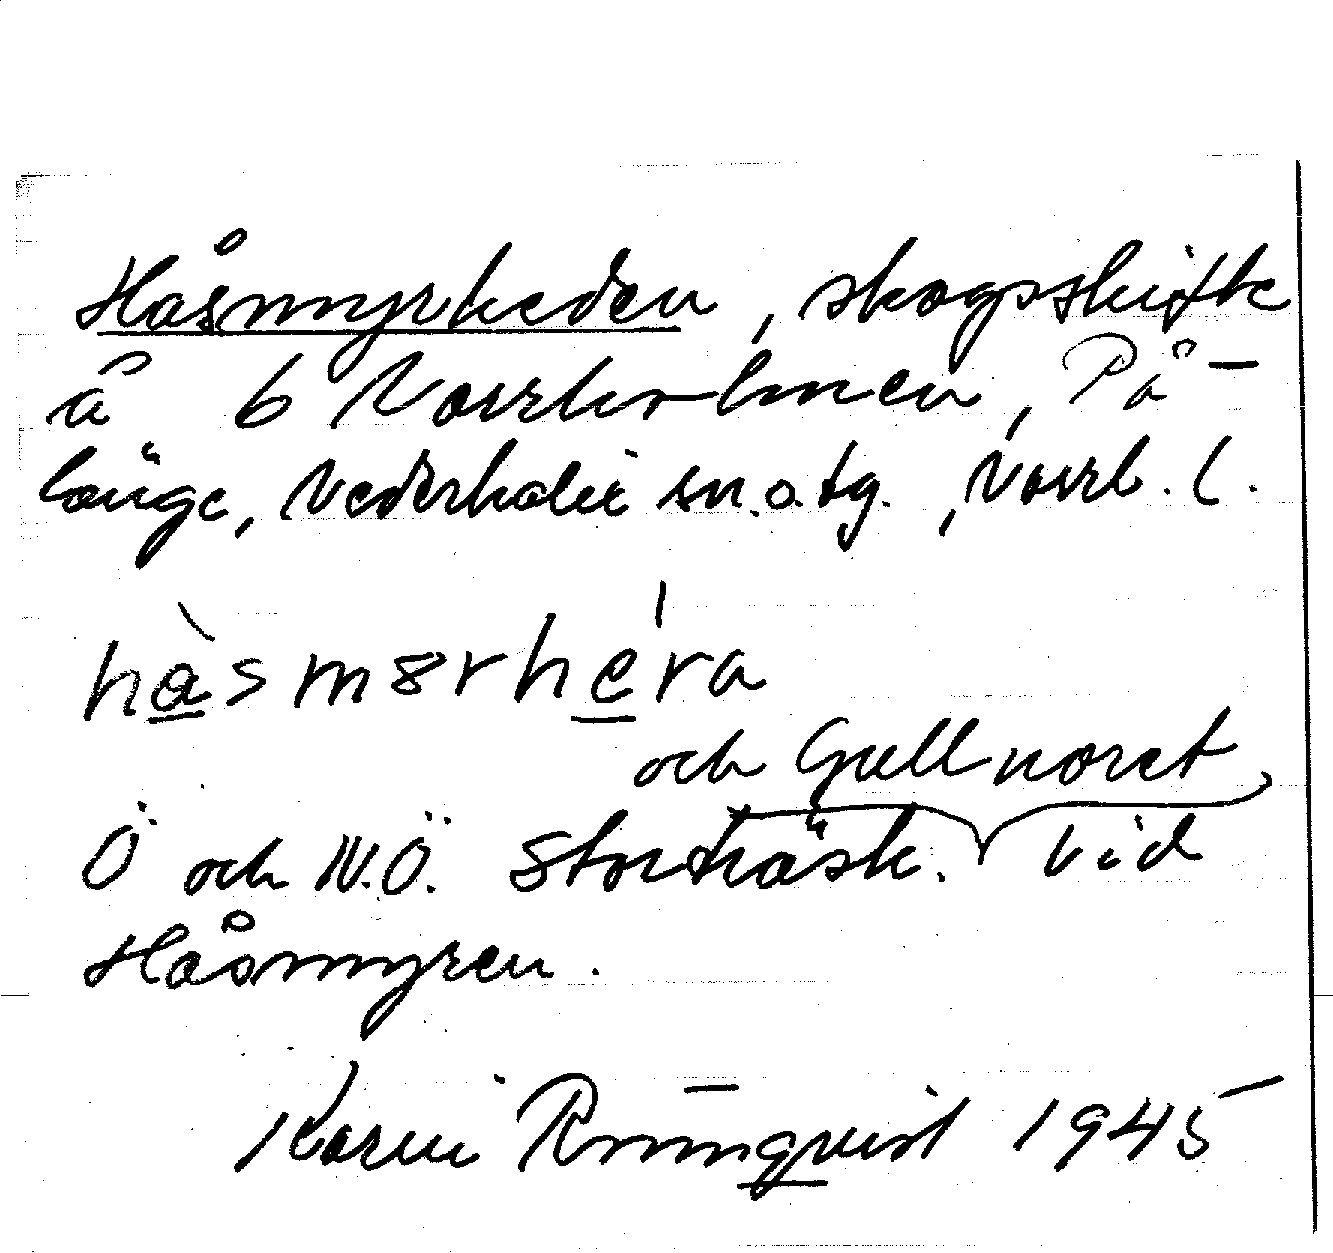 Håsmyrheden, skogsskifte
å 6 Norrholmen, På-
länge, Nederkalix sn. o. tg., Norrb. l.
hàsmɵrhéra
och Gullnoret
Ö och N.Ö. Storträsk. vid
Håsmyren.
Karin Rönnqvist 1945